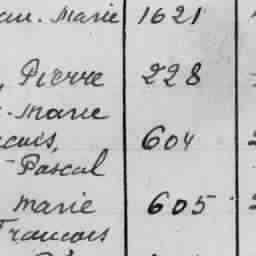 Marie 1621
Pierre 228
Marie
604
Pascal
Marie 605
Francois